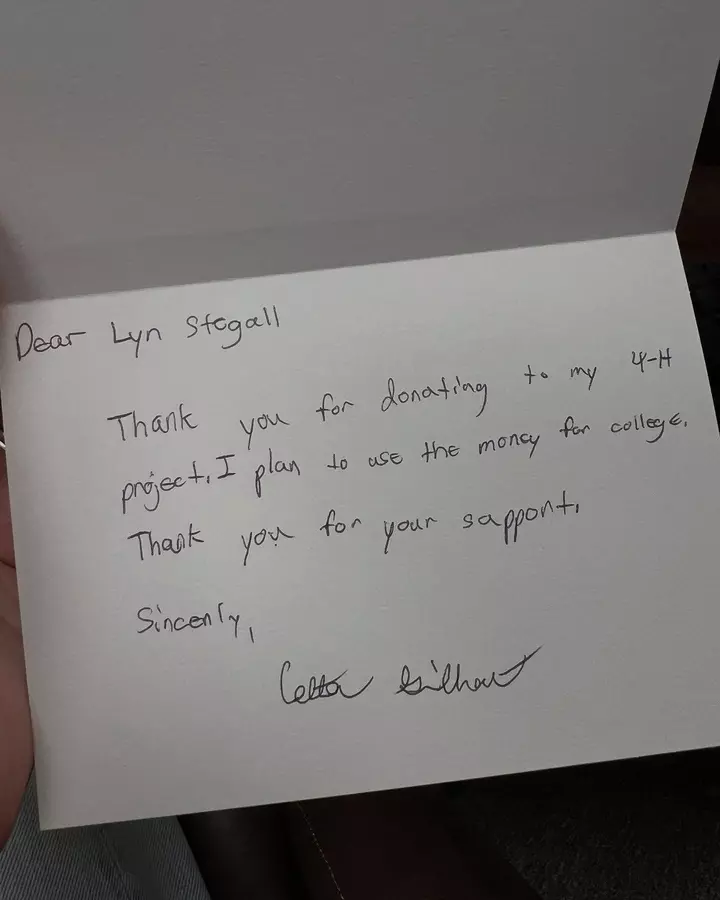 Dear Lyn Stegall
Thank you for donating to my 4-H
project. I plan to use the money for college.
Thank you for your support.
Sincenly,